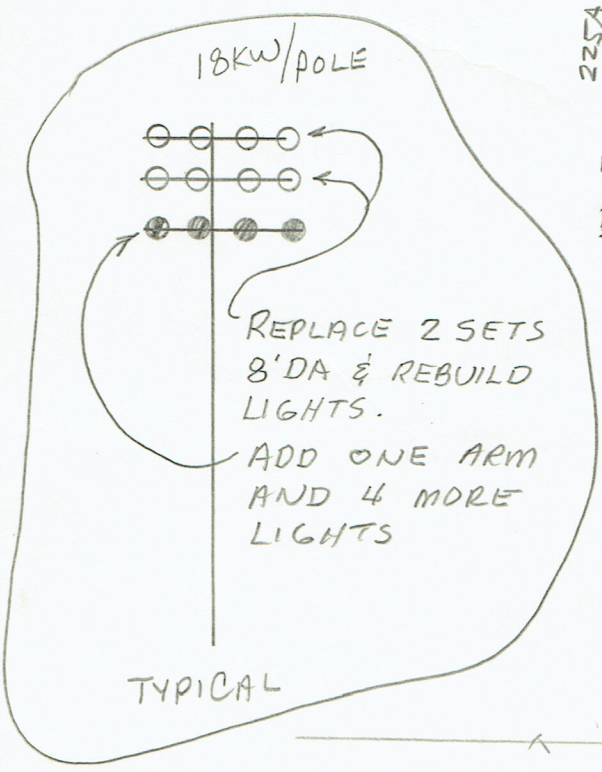 18KW/POLE
225A
REPLACE 2 SETS
8'DA & REBUILD
LIGHTS.
ADD ONE ARM
AND 4 MORE
LIGHTS
TYPICAL